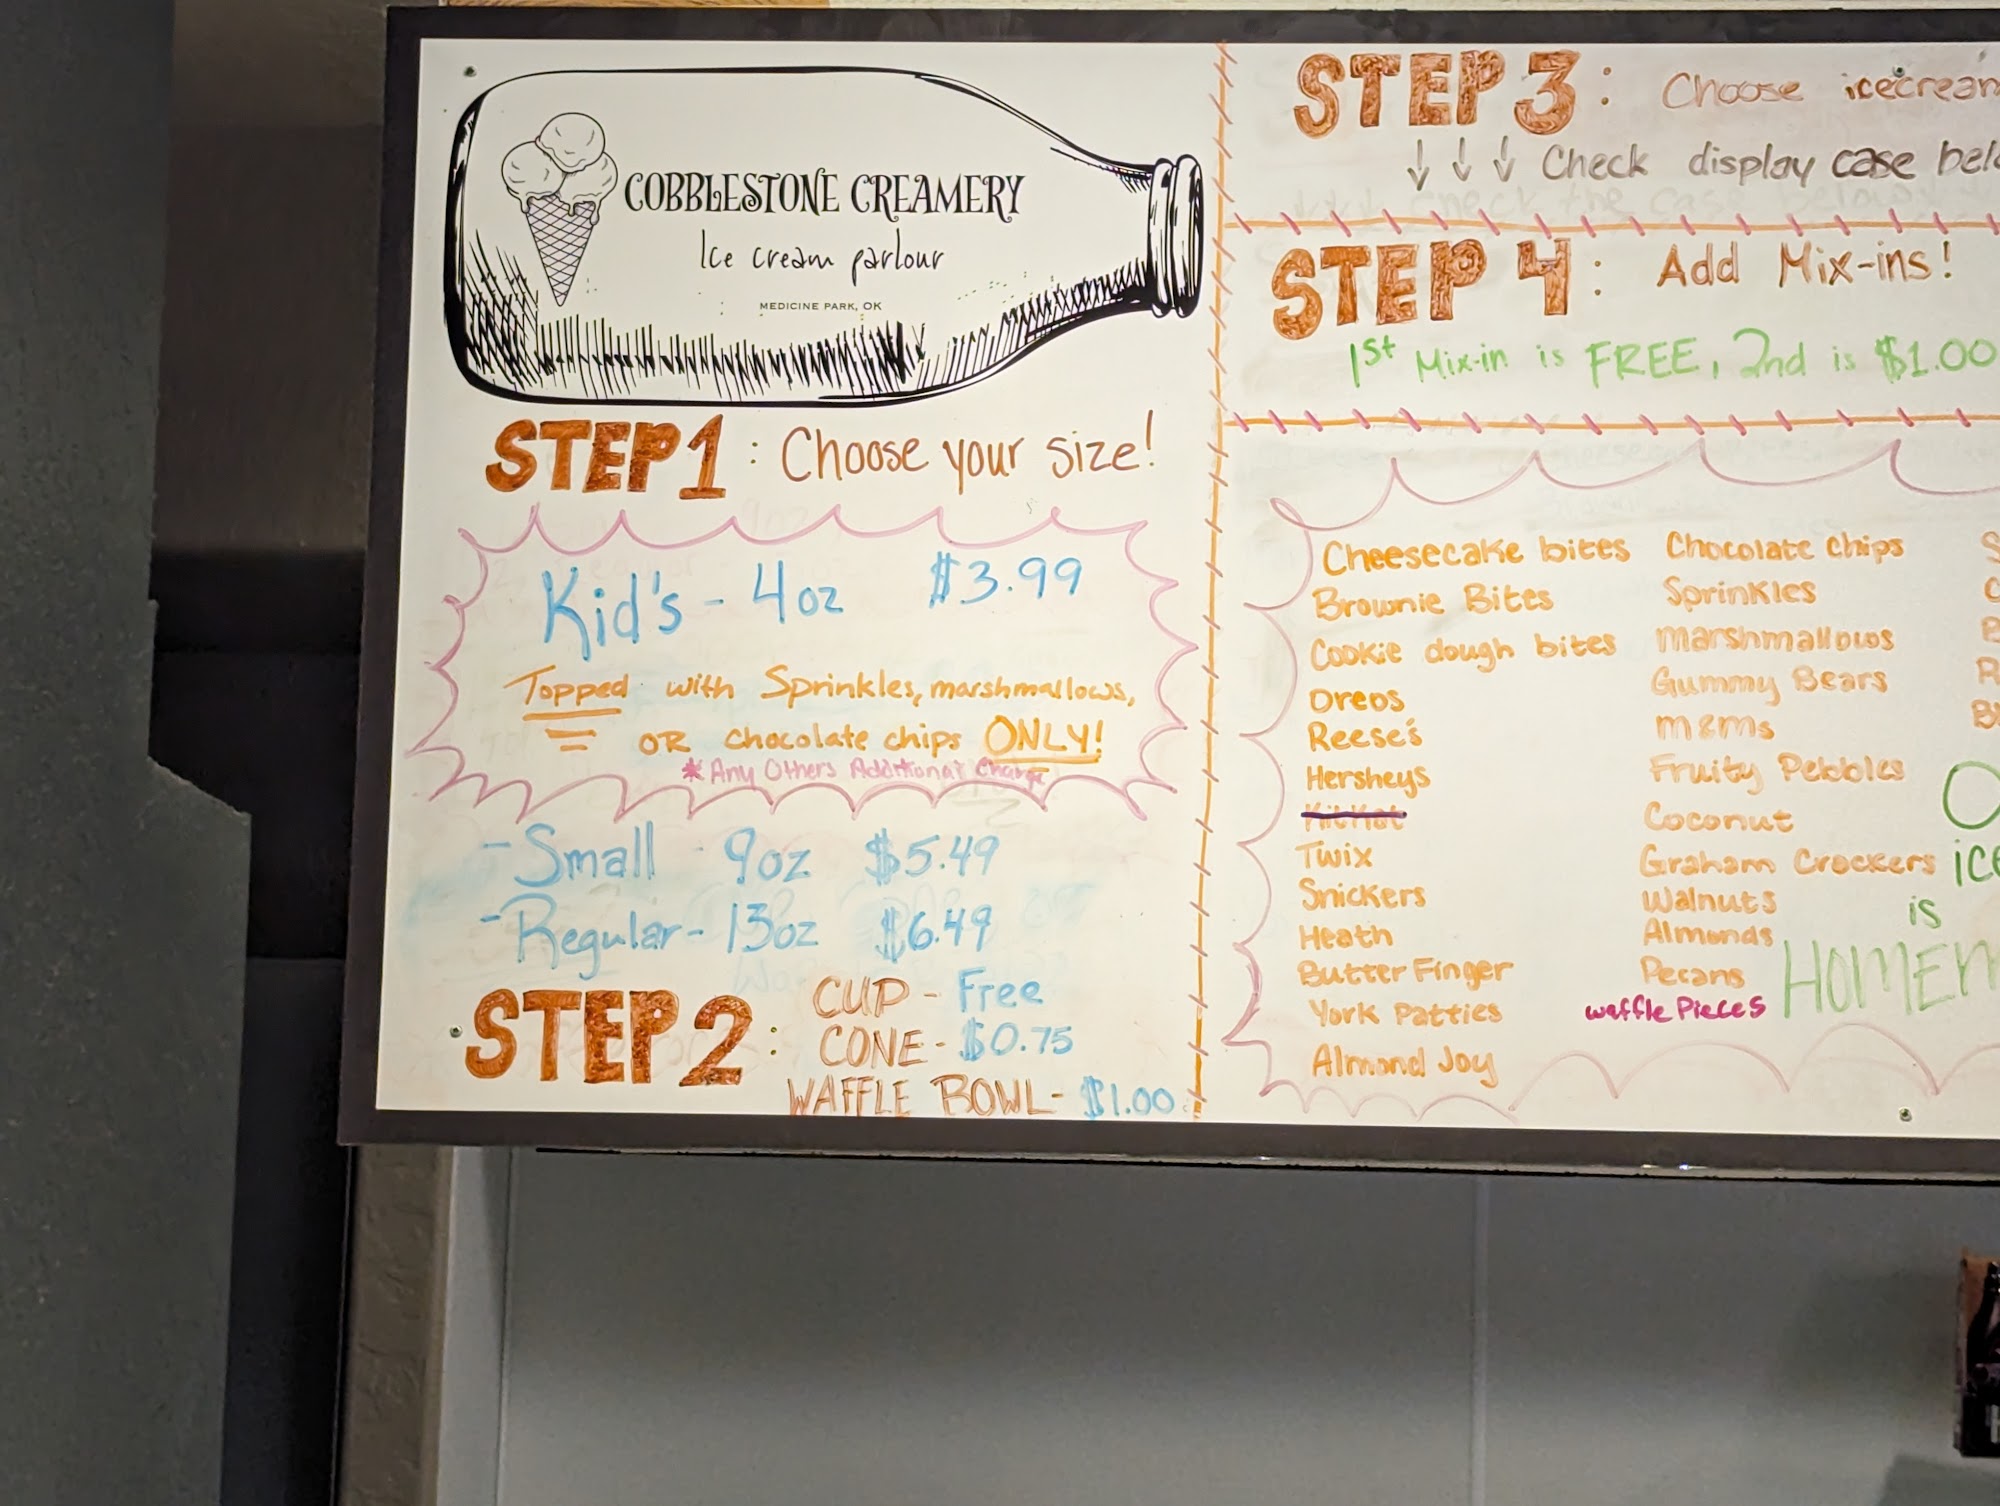 COBBLESTONE CREAMERY
Ice cream parlour
MEDICINE PARK, OK
STEP 1: Choose your size!
Kid's - 4oz $3.99
Topped with Sprinkles, marshmallows,
OR chocolate chips ONLY!
*Any Others Additional Charge
- Small - 9oz $5.49
- Regular - 13oz $6.49
STEP 2: CUP - Free
CONE - $0.75
WAFFLE BOWL - $1.00
STEP 3: Choose icecream
↓ ↓ ↓ Check display case
STEP 4: Add Mix-ins!
1st Mix-in is FREE, 2nd is $1.00
Cheesecake bites
Brownie Bites
Cookie dough bites
Oreos
Reese's
Hersheys
KitKat
Twix
Snickers
Heath
Butter Finger
York Patties
Almond Joy
Chocolate Chips
Sprinkles
Marshmallows
Gummy Bears
M&Ms
Fruity Pebbles
Coconut
Graham Crackers
Walnuts
Almonds
Pecans
waffle Pieces
is